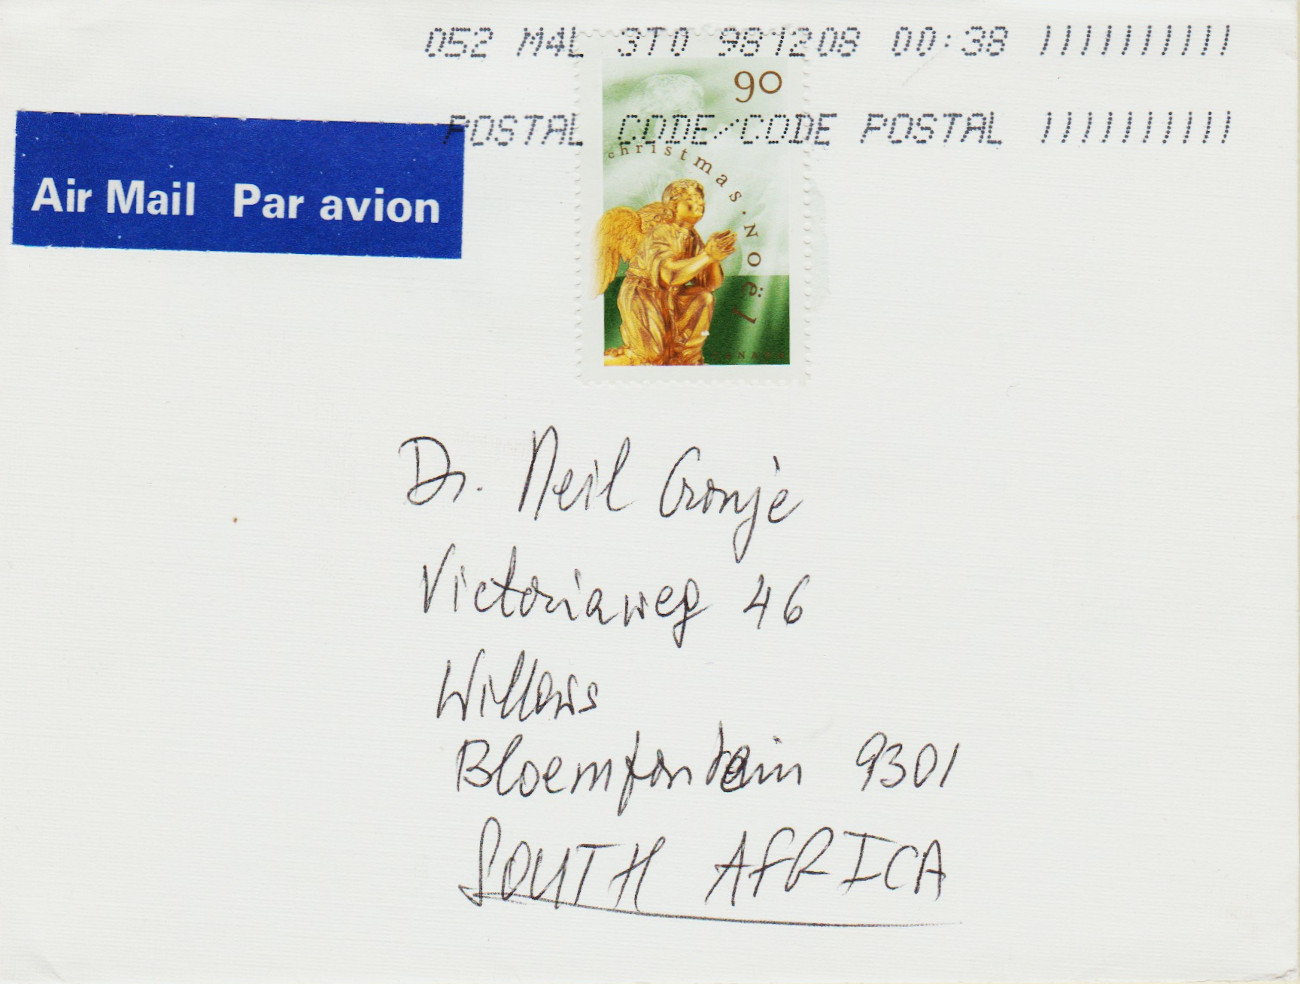 052 M4L 3T0 981208 00:38 !!!!!!!!!!
POSTAL CODE/CODE POSTAL !!!!!!!!!!
90
christmas·noël
Air Mail Par avion
Dr. Neil Cronje
Victoriaweg 46
Willows
Bloemfontein 9301
SOUTH AFRICA